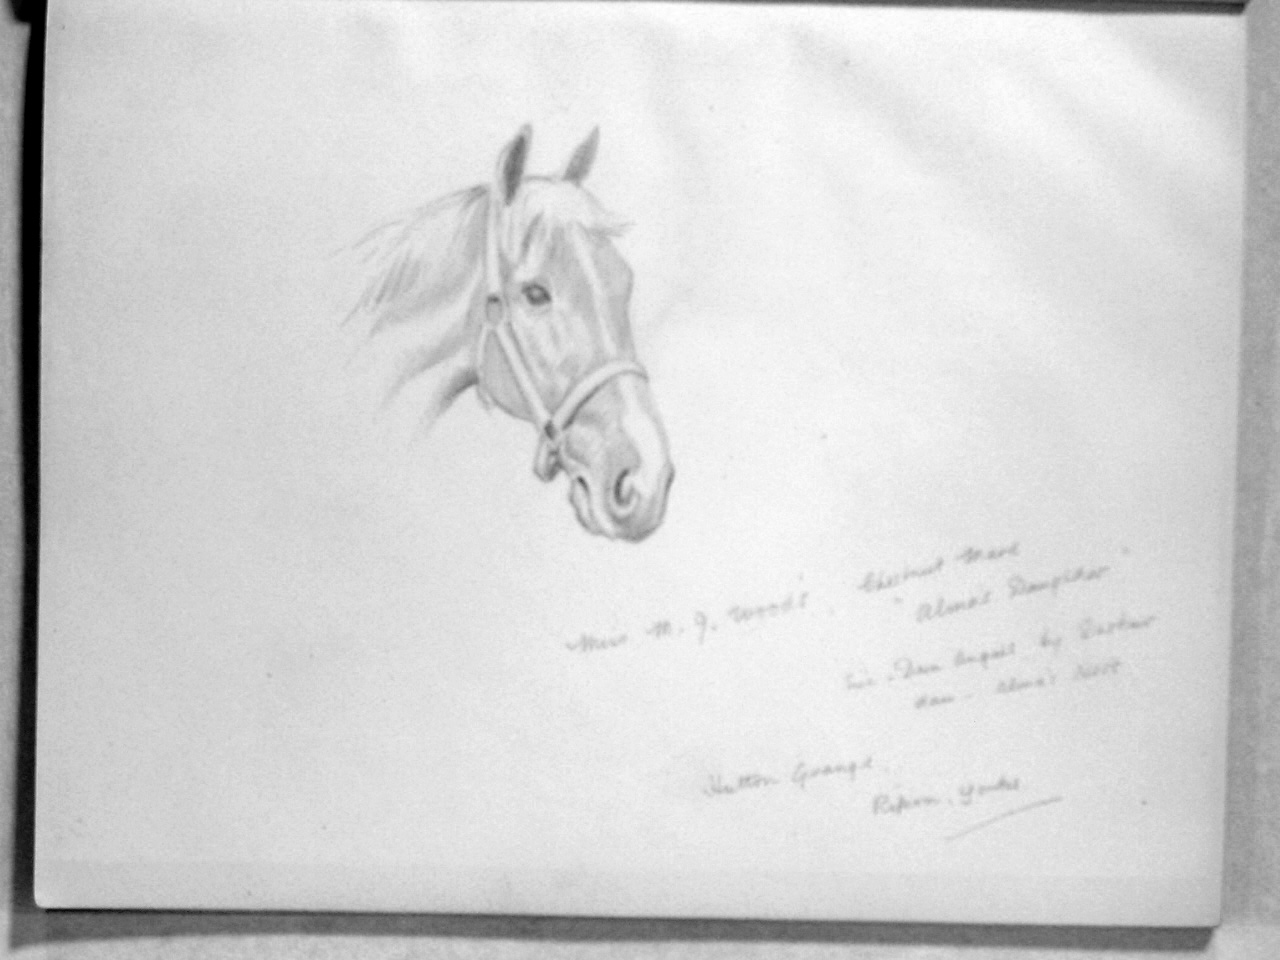 Miss M. J. Wood's. Chestnut Mare
"Alma's Daughter"
Sire - Dear by
dam - Alma's
Hutton Grange.
Ripon. Yorks